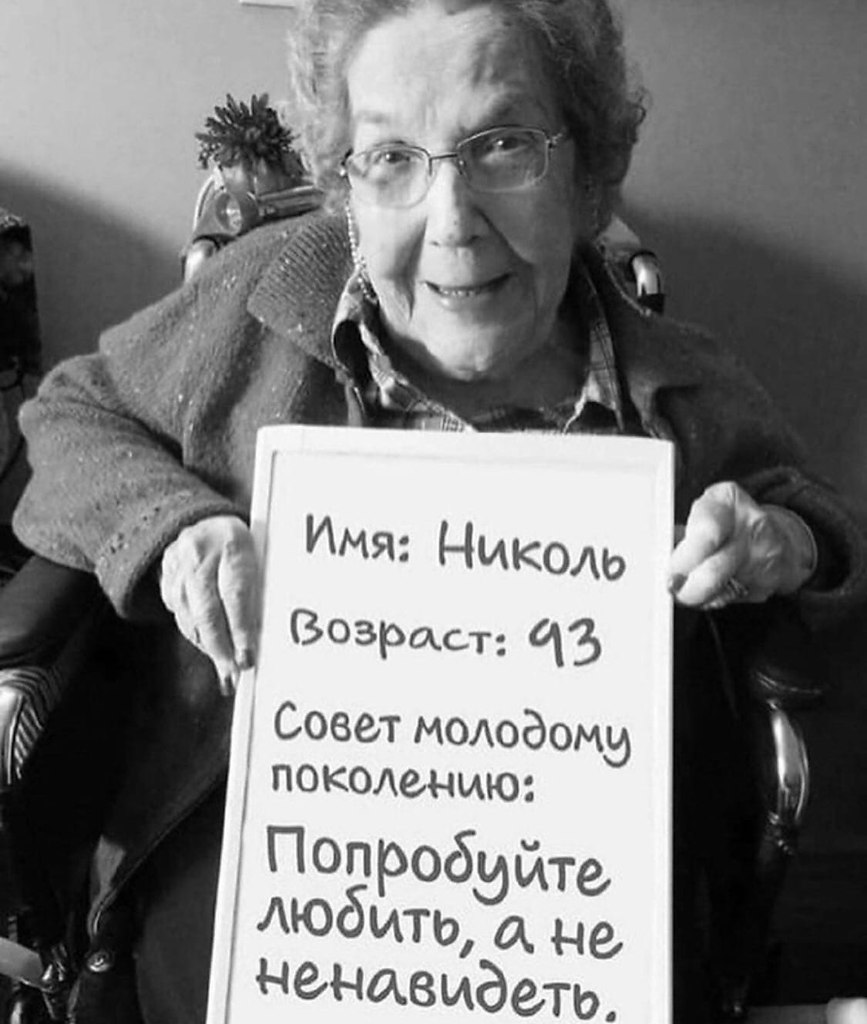 Имя: Николь
Возраст: 93
Совет молодому
поколению:
Попробуйте
любить, а не
ненавидеть.